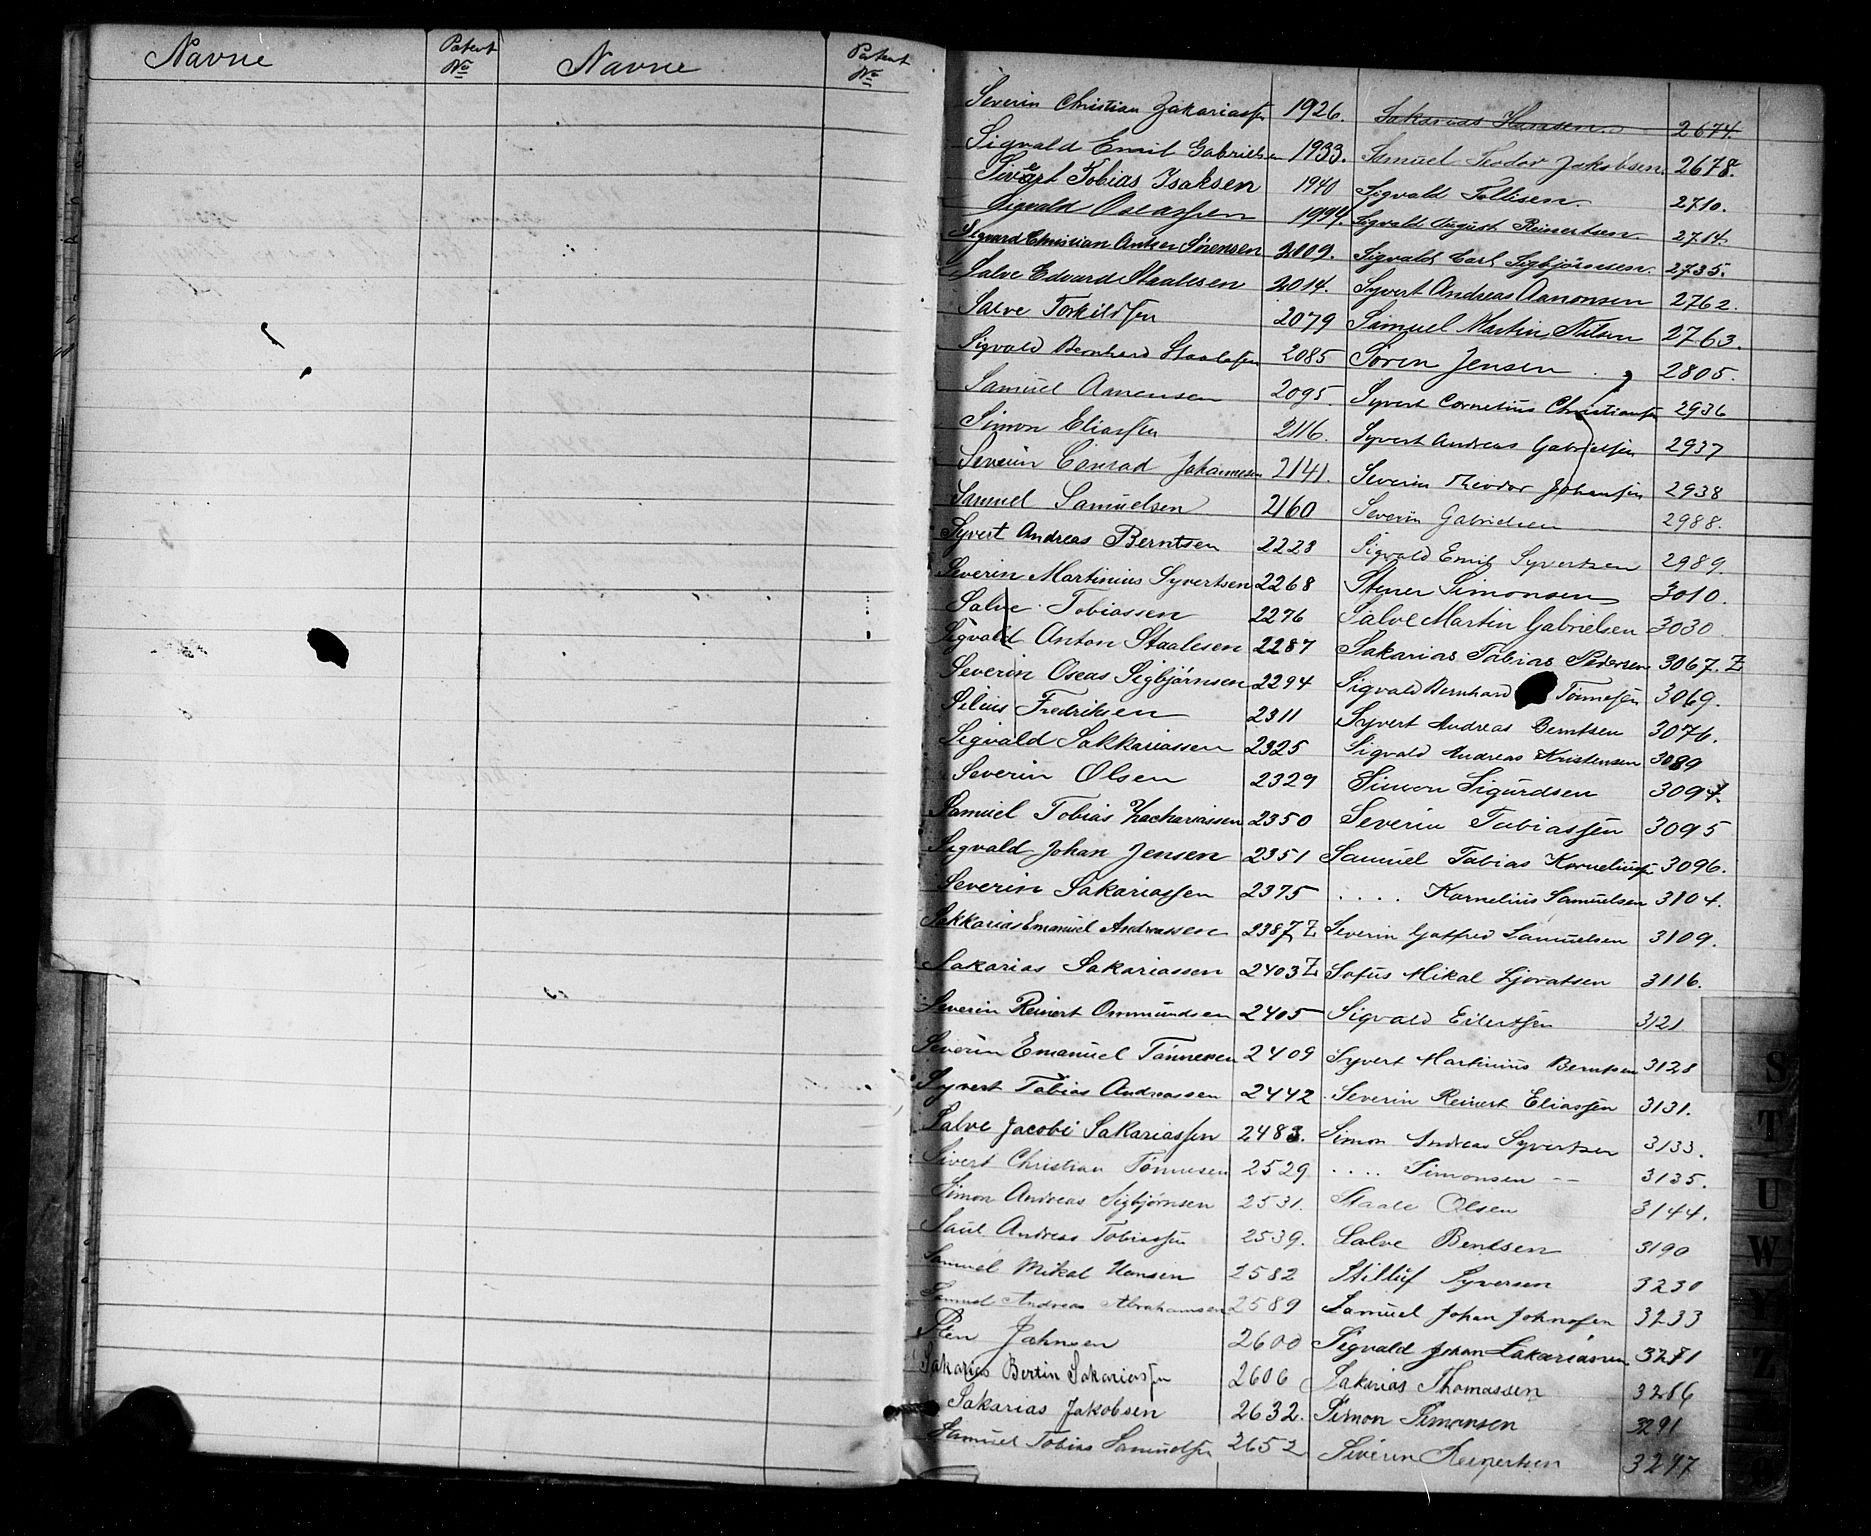 Navne Patent No Navne Patent No
Severin Christian Zakariassen 1926.
Sigvald Emil Gabrielsen 1933.
Sivert Tobias Isaksen 1940
Sigvald Oseassen 1994.
Sigvard Christian Anker Sörensen 2009.
Salve Edvard Staalesen 2014.
Salve Torkildsen 2079
Sigvald Bernhard Staalesen 2085
Samuel Amensen 2095.
Simon Eliassen 2116.
Severin Conrad Johannesen 2141.
Samuel Samuelsen 2160
Syvert Andreas Berntsen 2228
Severin Martinius Syvertsen 2268
Salve Tobiassen 2276
Sigvald Anton Staalesen 2287
Severin Oseas Sigbjörnsen 2294
Silius Fredriksen 2311
Sigvald Sakkariassen 2325
Severin Olsen 2329
Samuel Tobias Zachariassen 2350
Sigvald Johan Jensen 2351
Severin Sakariassen 2375
Sakkarias Emanuel Andreassen 2387 Z
Sakarias Sakariassen 2403 Z
Severin Reinert Ommundsen 2405
Severin Emanuel Tönnesen 2409
Syvert Tobias Andreassen 2442
Salve Jacobi Sakariassen 2483.
Sivert Christian Tönnesen 2529
Simon Andreas Sigbjørnsen 2531.
Saul Andreas Tobiassen 2539.
Samuel Mikal Hansen 2582
Samuel Andreas Abrahamsen 2589
Sten Jahnsen 2600
Sakarias Bertin Sakariassen 2606
Sakarias Jakobsen 2632.
Samuel Tobias Samuelsen 2652
Sakarias Hansen 2674.
Samuel Teodor Jakobsen 2678.
Sigvald Tollisen 2710.
Sigvald August Reinertsen 2714
Sigvald Carl Sigbjörnsen 2735.
Syvert Andreas Aanonsen 2762.
Samuel Martin Nilsen 2763.
Sören Jensen 2805.
Syvert Cornelius Christiansen 2936
Syvert Andreas Gabrielsen 2937
Severin Theodor Johansen 2938
Severin Gabrielsen 2988.
Sigvald Emil Syvertsen 2989.
Stener Simonsen 3010.
Salve Martin Gabrielsen 3030
Sakarias Tobias Pedersen 3067. Z
Sigvald Bernhard Tönnesen 3069.
Syvert Andreas Berntsen 3076.
Sigvald Andreas Kristensen 3089
Simon Sigurdsen 3094.
Severin Tobiassen 3095
Samuel Tobias Korneliussen 3096.
.... Kornelius Samuelsen 3104.
Severin Gotfred Samuelsen 3109.
Sofus Mikal Ljovatsen 3116.
Sigvald Eilertsen 3121
Syvert Martinius Berntsen 3128
Severin Reinert Eliassen 3131.
Simon Andreas Syvertsen 3133.
.... Simonsen 3135.
Staale Olsen 3144.
Salve Bentsen 3190
Stilluf Syversen 3230
Samuel Johan Johnsen 3233
Sigvald Johan Zakariasen 3271
Sakarias Thomassen 3286
Simon Simonsen 3291
Severin Reinertsen 3297
S
T
U
W
Y
Z